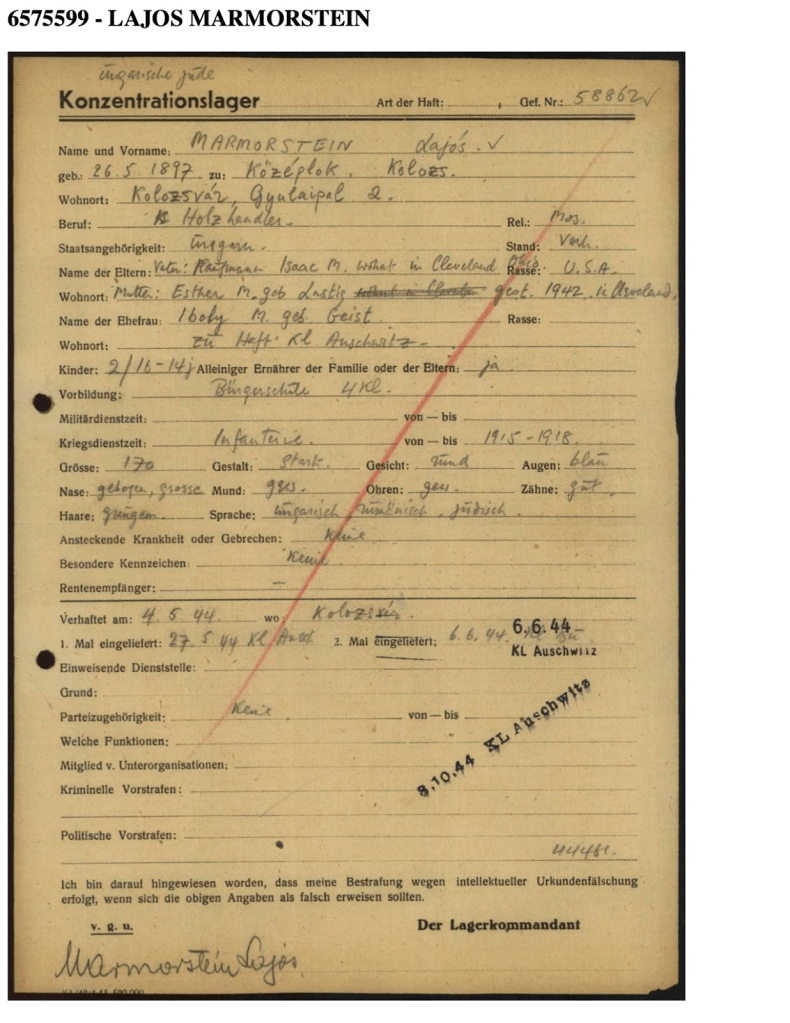 6575599 - LAJOS MARMORSTEIN
ungarische Jude
Konzentrationslager Art der Haft: , Gef. Nr.: 58862 √
Name und Vorname: MARMORSTEIN Lajós. √
geb.: 26.5.1897 zu: Középlok. Kolozs.
Wohnort: Kolozsvár, Gyulaipal 2.
Beruf: Holzhändler. Rel.: Mos.
Staatsangehörigkeit: Ungarn. Stand: Verh.
Name der Eltern: Vater: Kaufmann Isaac M. wohnt in Cleveland Ohio Rasse: U.S.A.
Wohnort: Mutter: Esther M. geb Lustig wohnt in Cleveland gest. 1942 in Cleveland,
Name der Ehefrau: Iboly M. geb Geist Rasse:
Wohnort: zu Haft Kl Auschwitz -
Kinder: 2/16-14j Alleiniger Ernährer der Familie oder der Eltern: ja
Vorbildung: Bürgerschule 4 Kl.
Militärdienstzeit: von — bis
Kriegsdienstzeit: Infanterie. von — bis 1915-1918.
Grösse: 170 Gestalt: Stark. Gesicht: rund Augen: blau
Nase: gebogen, grosse Mund: gew. Ohren: gew. Zähne: gut
Haare: Sprache: ungarisch, rumänisch, jüdisch.
Ansteckende Krankheit oder Gebrechen: Keine
Besondere Kennzeichen: Keine
Rentenempfänger: —
Verhaftet am: 4.5.44. wo: Kolozsvár.
1. Mal eingeliefert: 27.5.44 Kl Ausch 2. Mal eingeliefert: 6.6.44. Kl Bu
6.6.44
KL Auschwitz
Einweisende Dienststelle:
Grund:
Parteizugehörigkeit: Keine von — bis
8.10.44 KL Auschwitz
Welche Funktionen:
Mitglied v. Unterorganisationen:
Kriminelle Vorstrafen:
Politische Vorstrafen:
Ich bin darauf hingewiesen worden, dass meine Bestrafung wegen intellektueller Urkundenfälschung
erfolgt, wenn sich die obigen Angaben als falsch erweisen sollten.
v. g. u. Der Lagerkommandant
Marmorstein Lajos